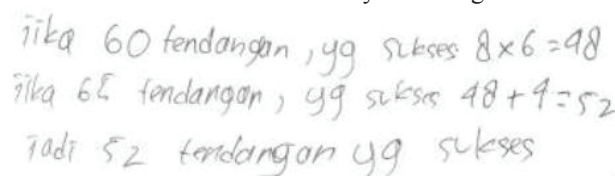 jika 60 tendangan, yg sukses 8 x 6 = 48
jika 65 tendangan, yg sukses 48 + 4 = 52
jadi 52 tendangan yg sukses